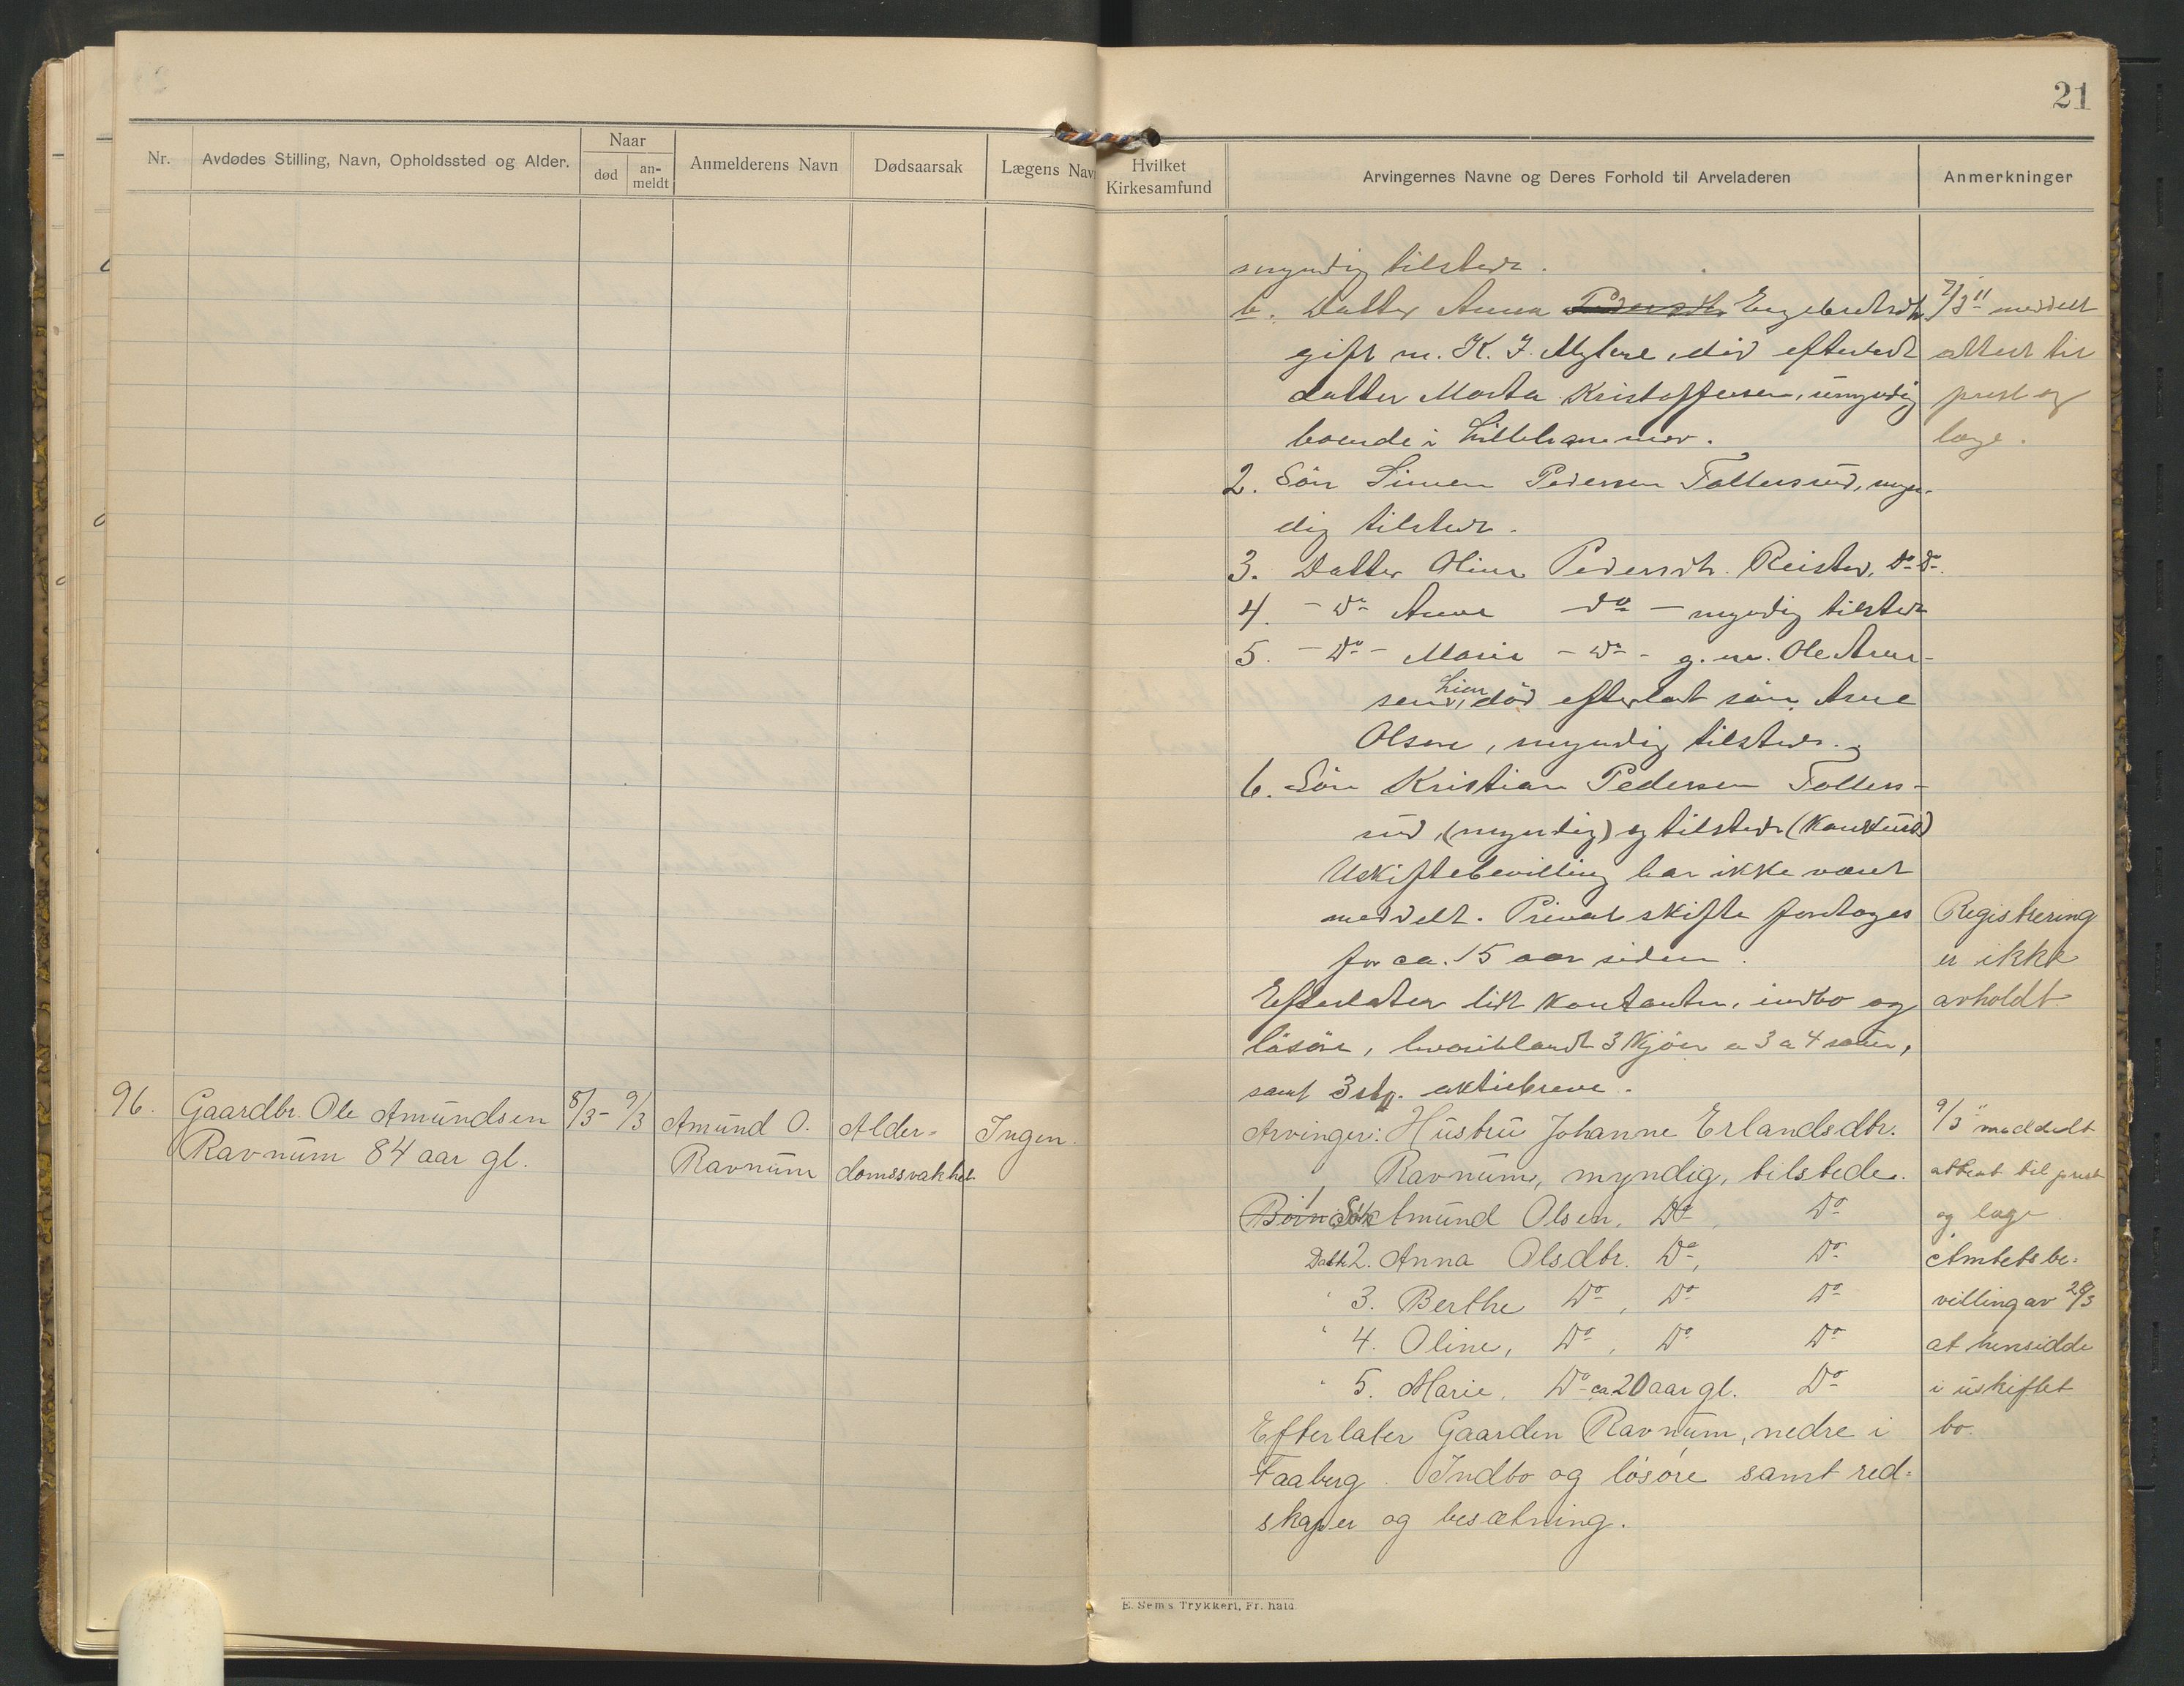 21
Nr.
Avdødes Stilling, Navn, Opholdssted og Alder.
Naar
død
an-
meldt
Anmelderens Navn
Dødsaarsak
Lægens Nav
Hvilket
Kirkesamfund
Arvingernes Navne og Deres Forhold til Arveladeren
Anmerkninger
myndig tilstede.
b. Datter Anna Engebretsdtr.
gift m. K. J. død efterladt
datter Marta Kristoffersen, umyndig
boende i Lillehammer.
2. Sön Simen Pedersen Follersud, myn-
dig tilstede.
3. Datter Oline Pedersdtr. Reistad, Do Do
4. - Do Anne - Do - myndig tilstede
5. - Do - Marie - Do - g. m. Ole Arne-
sen Lien, död efterlat sön Arne
Olsen, myndig tilstede.
6. Sön Kristian Pedersen Follers-
ud, (myndig) og tilstede
Uskiftebevilling har ikke været
meddelt. Privat skifte foretages
for ca. 15 aar siden.
Efterlater litt kontanter, indbo og
lösöre, hvoriblandt 3 Kjör a 3 a 4 sauer,
samt 3 stk. aktiebreve.
7/3 " meddelt
attest til
prest og
læge.
Registrering
er ikke
avholdt
96.
Gaardbr. Ole Amundsen
Ravnum 84 aar gl.
8/3 - 9/3
Amund O.
Ravnum
Alder-
domssvakhet
Ingen
Arvinger: Hustru Johanne Erlandsdtr.
Ravnum, myndig, tilstede.
Börn: Sön 1 Amund Olsen, Do, Do
Datter 2. Anna Olsdtr. Do, Do
" 3. Berthe Do, Do Do
" 4. Oline, Do, Do Do
" 5. Marie, Do ca 20 aar gl. Do
Efterlater Gaarden Ravnum, nedre i
Faaberg. Indbo og lösöre samt red-
skaper og besætning.
9/3 " meddelt
attest til prest
og læge
Amtets be-
villing av 28/3
at hensidde
i uskiftet
bo.
E. Sem's Trykkeri, Fr. hald